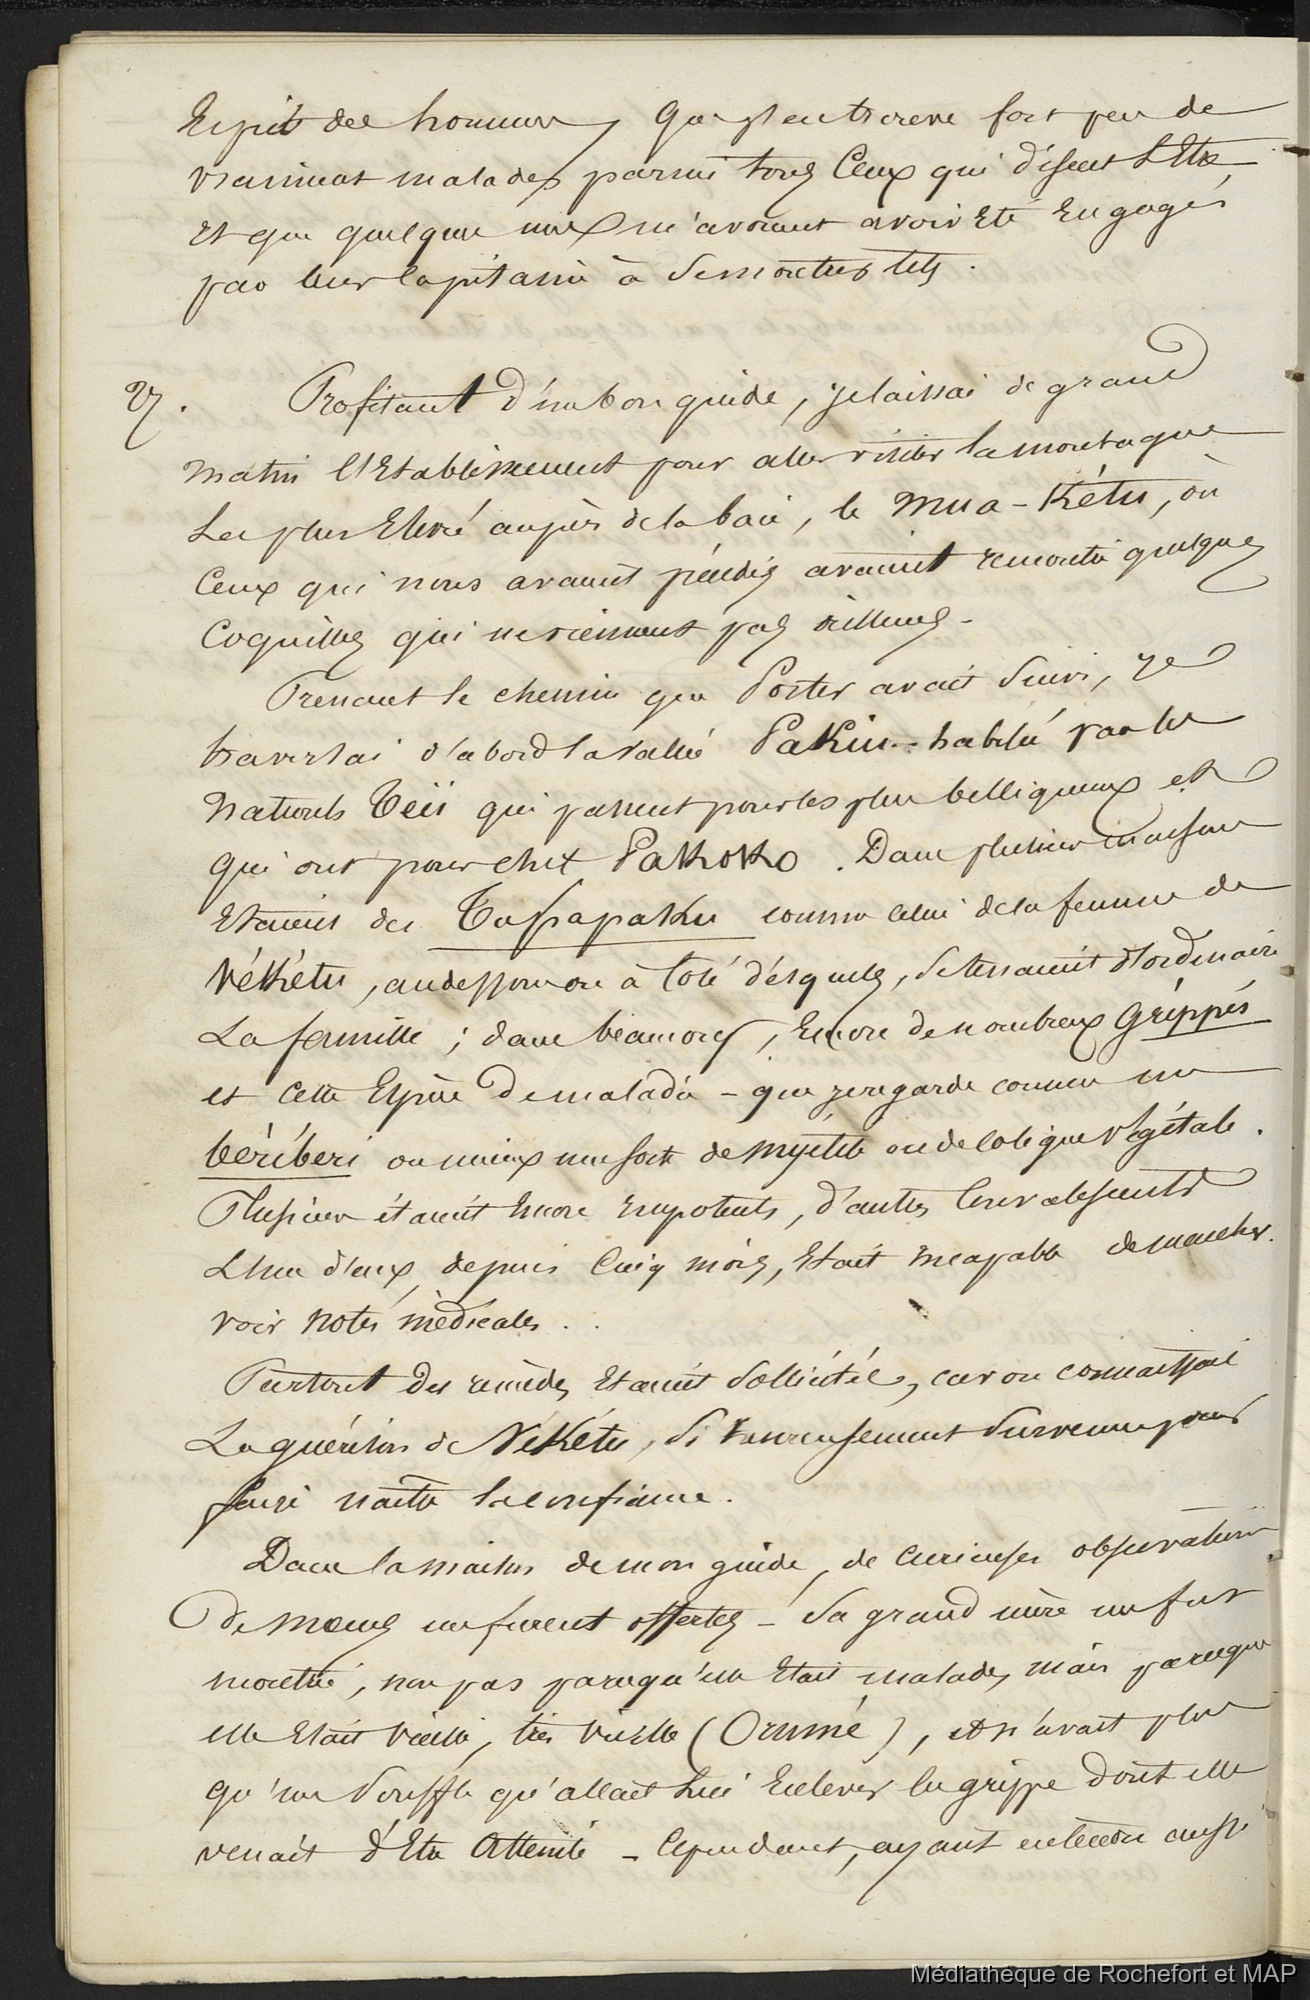 Esprit des hommes, que j'en trouve fort peu de
vraiment malades parmi tous Ceux qui disent l'Etre
Et que quelques uns m'avouent avoir Eté Engagés
par leur Capitaine à se montrer tels.
27. Profitant d'un bon guide, je laissai de grand
matin l'Etablissement pour aller visiter la montagne
La plus Elevée auprès de la baie, le Mua-Kétu, où
Ceux qui nous avaient précédés avaient rencontré quelques
Coquilles qui ne viennent pas ailleurs -
Prenant le chemin que Porter avait suivi, je
traversai d'abord la vallée Pakiu - habitée par les
Naturels Teii qui passent pour les plus belliqueux et
qui ont pour chef Pakoko. Dans plusieurs maisons
Etaient des Tupapaku comme celui de la femme de
Vékétu, au dessous ou à Côté desquels, se tenaient d'ordinaire
La famille ; dans beaucoup, Encore de nombreux Grippés
et cette Espèce de maladie - que je regarde comme un
béribéri ou mieux une sorte de myélite ou de Colique végétale.
Plusieurs étaient Encore Impotents, d'autres Convalescents
L'un d'eux, depuis Cinq mois, Etait Incapable de marcher.
voir notes médicales . .
Partout des remèdes Etaient Sollicités, car on connaissait
La guérison de Vékétu, si heureusement survenue pour
faire naître la confiance.
Dans la maison de mon guide, de Curieuses observations
de mœurs me furent offertes - Sa grand mère me fut
montrée, non pas parcequ'elle Etait malade, mais parceque
elle Etait vieille, très vieille (Oumé), et n'avait plus
qu'un Souffle qu'allait lui Enlever la grippe dont elle
venait d'Etre Atteinte - Cependant, ayant entendu aussi
Médiathèque de Rochefort et MAP